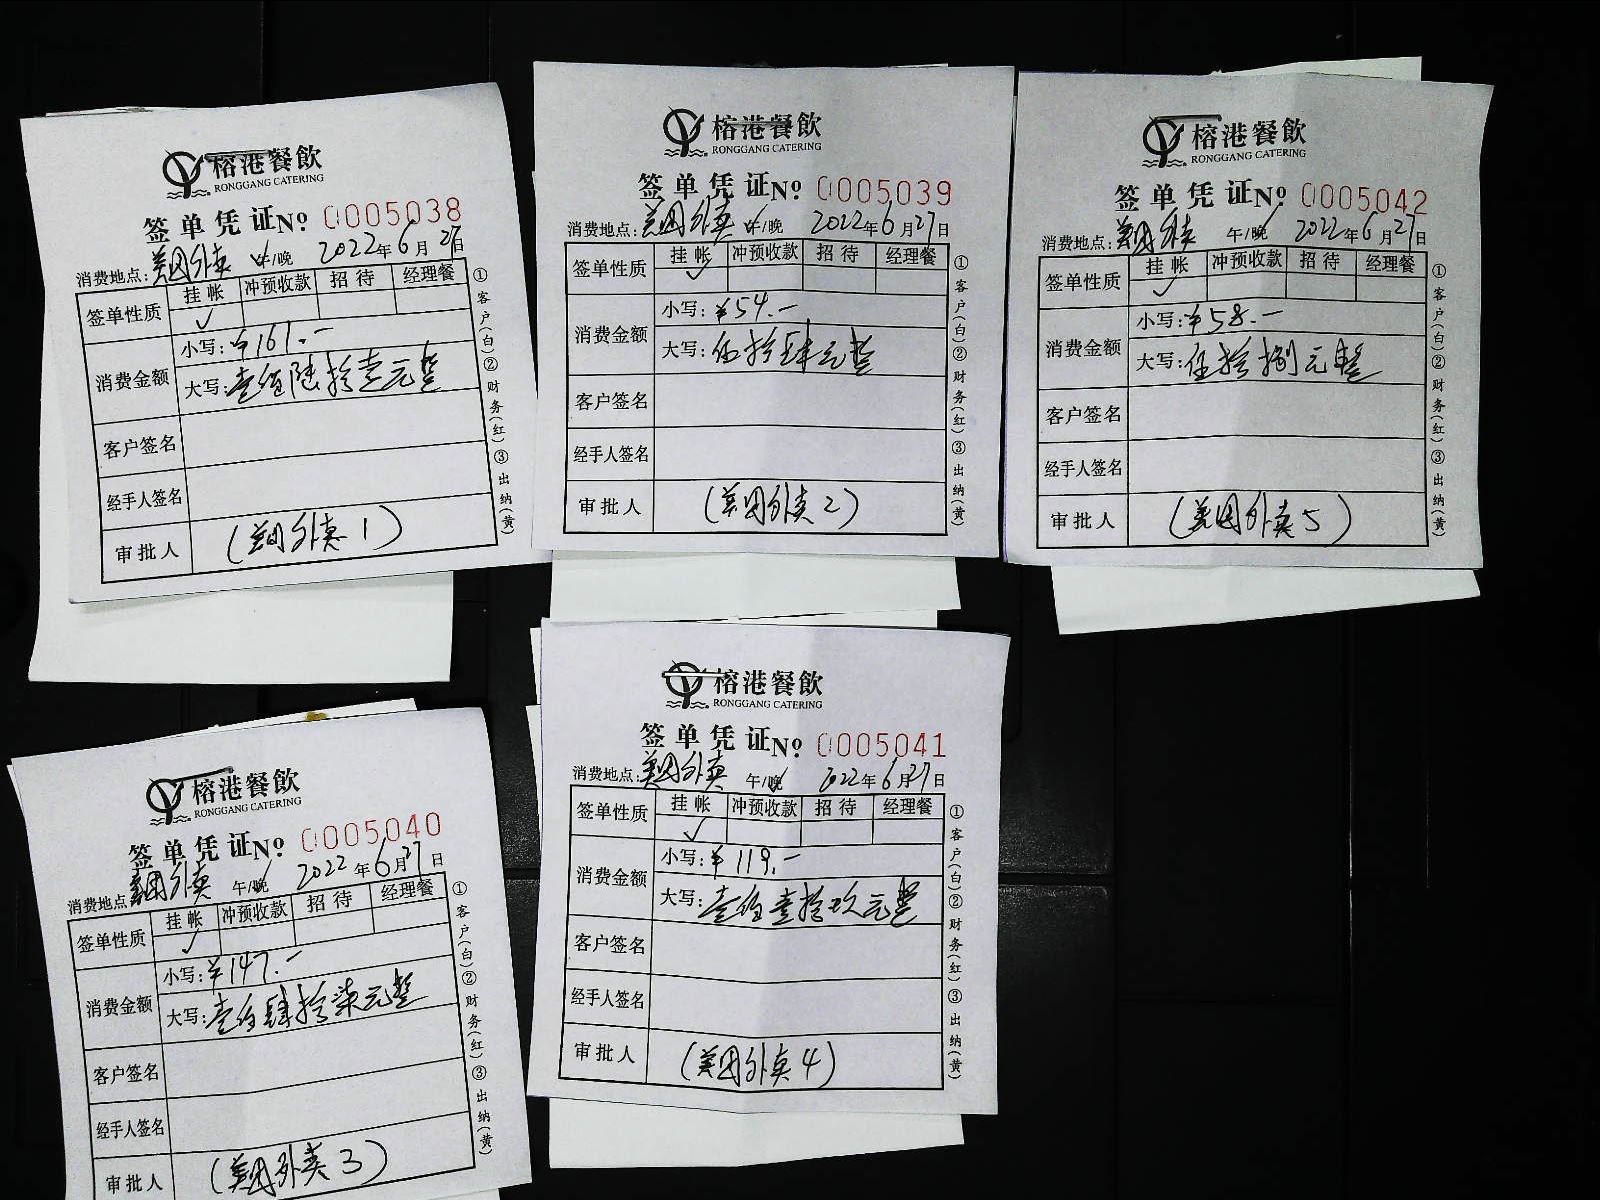 榕港餐飲
RONGGANG CATERING
签单凭证№ 0005038
消费地点:美团外卖 午/晚 2022年6月27日
签单性质 挂帐 冲预收款 招待 经理餐
✓
消费金额 小写:¥161.-
大写:壹佰陆拾壹元整
客户签名
经手人签名
审批人 (美团外卖1)
①客户(白)②财务(红)③出纳(黄)
榕港餐飲
RONGGANG CATERING
签单凭证№ 0005039
消费地点:美团外卖 午/晚 2022年6月27日
签单性质 挂帐 冲预收款 招待 经理餐
✓
消费金额 小写:¥54.-
大写:伍拾肆元整
客户签名
经手人签名
审批人 (美团外卖2)
①客户(白)②财务(红)③出纳(黄)
榕港餐飲
RONGGANG CATERING
签单凭证№ 0005042
消费地点:美团外卖 午/晚 2022年6月27日
签单性质 挂帐 冲预收款 招待 经理餐
✓
消费金额 小写:¥58.-
大写:伍拾捌元整
客户签名
经手人签名
审批人 (美团外卖5)
①客户(白)②财务(红)③出纳(黄)
榕港餐飲
RONGGANG CATERING
签单凭证№ 0005040
消费地点:美团外卖 午/晚 2022年6月27日
签单性质 挂帐 冲预收款 招待 经理餐
✓
消费金额 小写:¥147.-
大写:壹佰肆拾柒元整
客户签名
经手人签名
审批人 (美团外卖3)
①客户(白)②财务(红)③出纳(黄)
榕港餐飲
RONGGANG CATERING
签单凭证№ 0005041
消费地点:美团外卖 午/晚 2022年6月27日
签单性质 挂帐 冲预收款 招待 经理餐
✓
消费金额 小写:¥119.-
大写:壹佰壹拾玖元整
客户签名
经手人签名
审批人 (美团外卖4)
①客户(白)②财务(红)③出纳(黄)